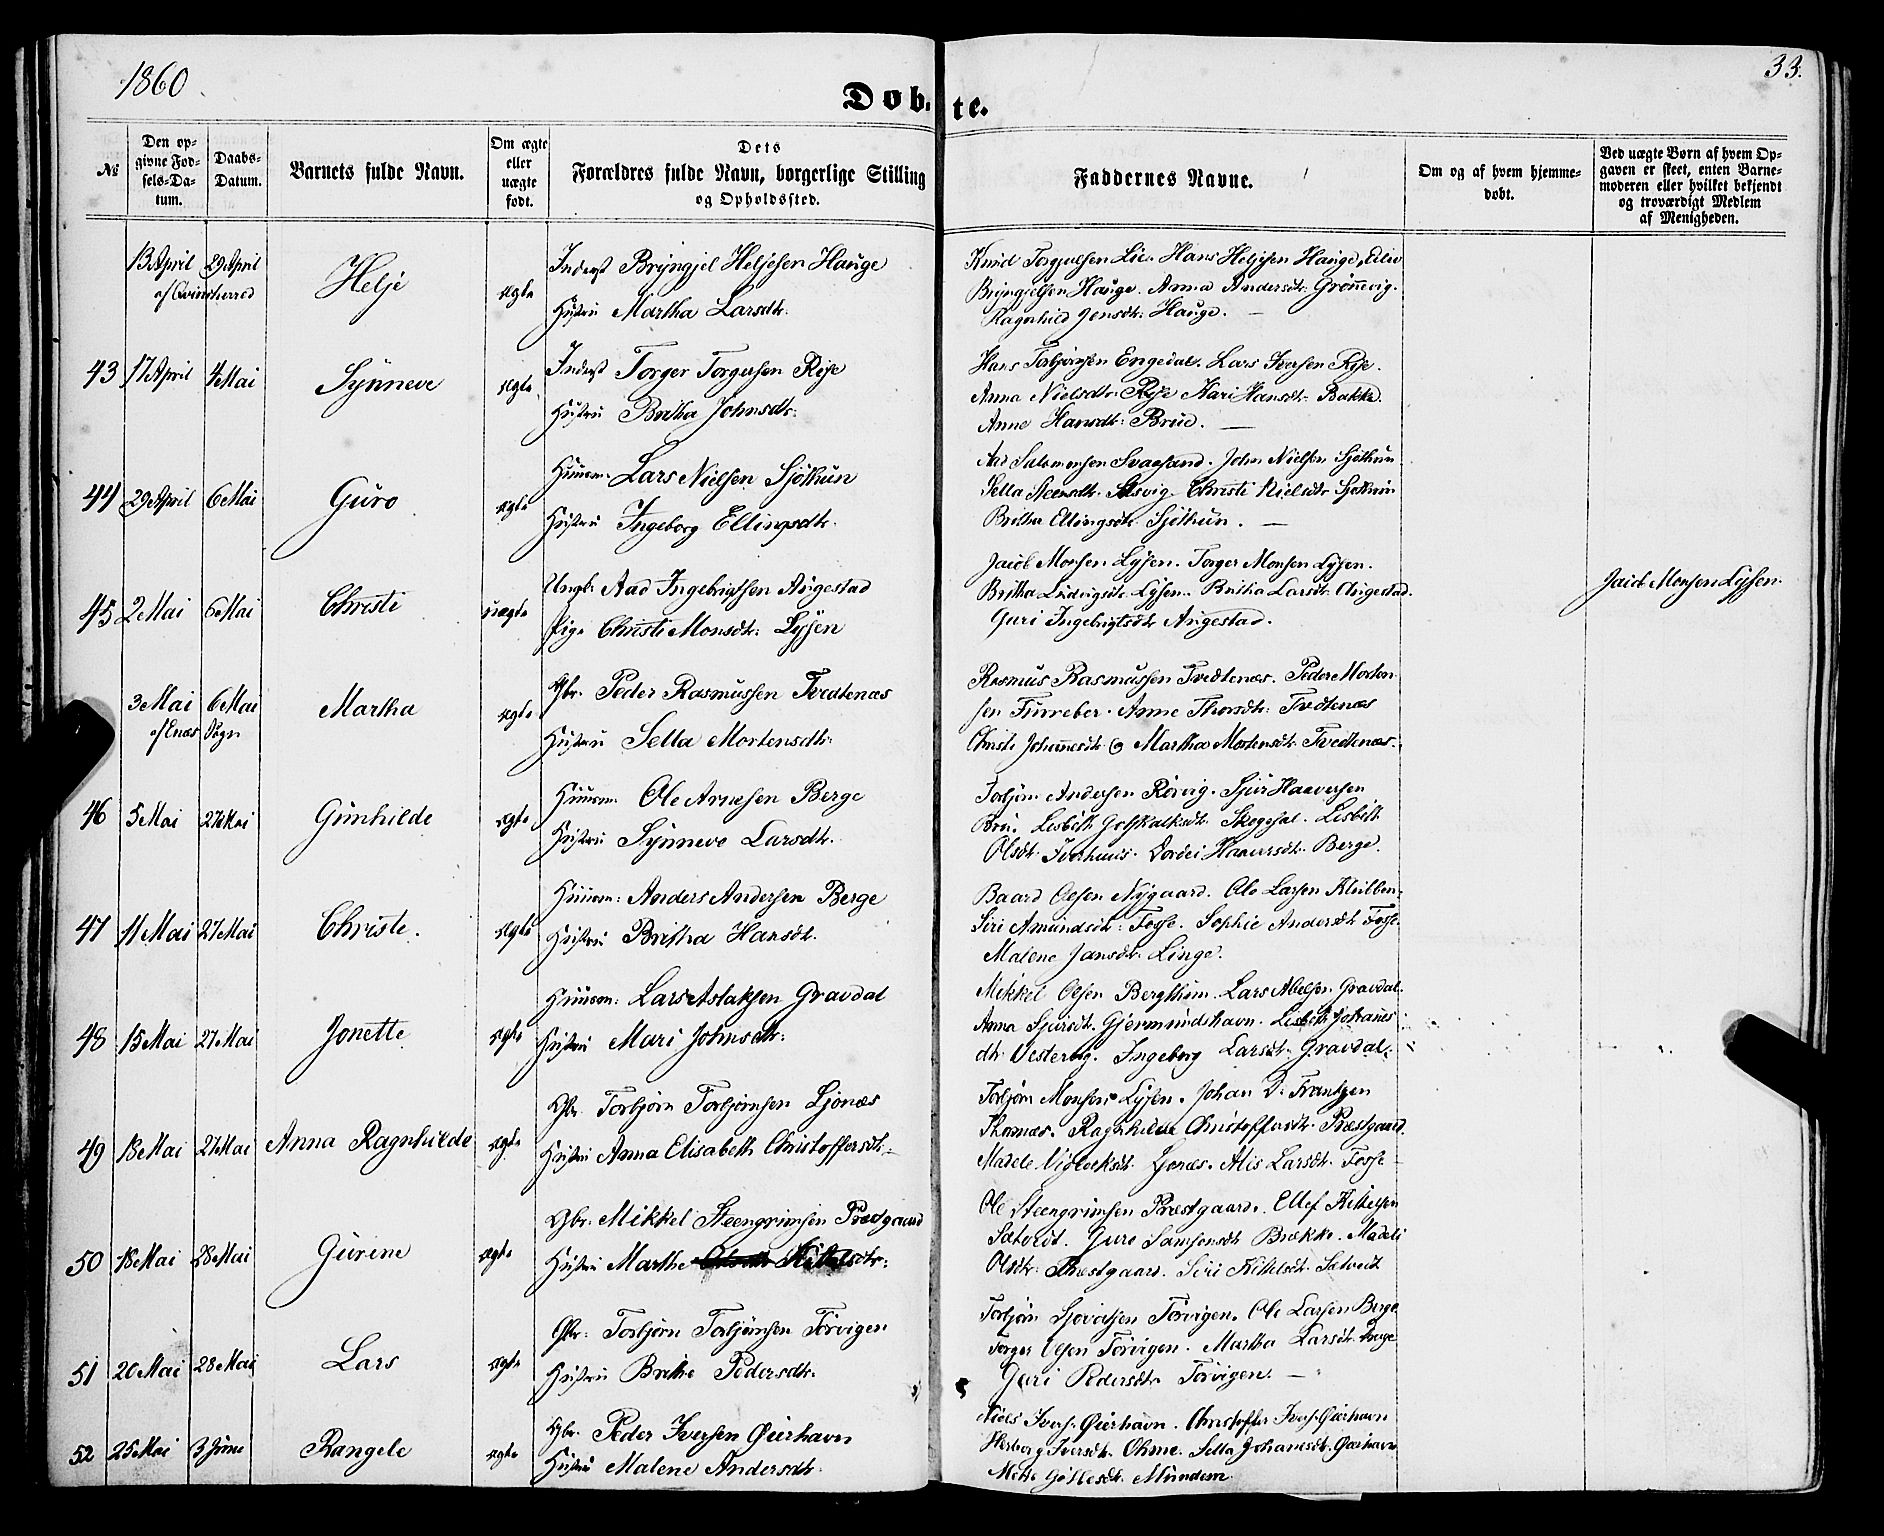 1860
33.
Døbte.
№
Den opgivne Fødsels-Datum.
Daabs-Datum.
Barnets fulde Navn.
Om ægte eller uægte født.
Dets Forældres fulde Navn, borgerlige Stilling og Opholdssted.
Faddernes Navne.
Om og af hvem hjemmedøbt.
Ved uægte Børn af hvem Opgaven er skeet, enten Barnemoderen eller hvilket bekjendt og troværdigt Medlem af Menigheden.
13 April 29 April Helje ægte Inderst Bryngjel Heljesen Hauge
Hustru Martha Larsdtr.
Knud Torgjulsen Lie. Hans Heljesen Hauge, Edlev
Bryngjelsen Hauge. Anna Andersdtr. Grønnevig.
Ragnhild Jensdtr. Hauge.
43 17 April 4 Mai Synneve ægte Inderst Torger Torgersen Rise
Hustru Britha Johnsdtr.
Hans Torbjørnsen Engedal. Lars Iversen Rise.
Anna Nielsdtr. Rise Kari Hansdtr. Bakke.
Anne Hansdtr: Brue.
44 29 April 6 Mai Guro ægte Huusm. Lars Nielsen Sjøthun
Hustru Ingeborg Ellingsdtr.
Aad Salomonsen Svaasand. John Nielsen Sjøthun
Sella Steensdtr. Christi Nielsdtr Sjøthun
Britha Ellingsdtr. Sjøthun.
45 2 Mai 6 Mai Christi uægte Ungk. Aad Ingebrigtsen Augestad
Pige Christi Monsdtr: Lysen
Jacob Monsen Lysen. Torger Monsen Lysen.
Britha Ludvigsdtr. Lysen. Britha Larsdtr. Augestad.
Guri Ingebrigtsdtr Augestad.
Jacob Monsen Lysen.
3 Mai 6 Mai Martha ægte Gbr. Peder Rasmussen Tvedtenæs
af Enæs Sogn
Hustru Sella Mortensdtr:
Rasmus Rasmussen Tvedtenæs. Peder Morten-
sen Furreber. Anne Thorsdtr: Tvedtenæs
Christi Johannesdtr. & Martha Mortensdtr. Tvedtenæs.
46 5 Mai 27 Mai Gunhilde ægte Huusm. Ole Arnesen Berge
Hustru Synneve Larsdtr.
Torbjørn Andersen Rørvig. Sjur Haaversen
Bru. Lisbeth Gotskalksdtr. Skogesal. Lisbeth
Olsdtr. Iverhuus. Dordei Haaversdtr. Berge.
47 11 Mai 27 Mai Christe. ægte Huusm: Anders Andersen Berge
Hustru Britha Hansdtr.
Baard Olsen Nygaard. Ole Larsen Kleilben.
Siri Amundsdtr: Fosse. Sophie Andersdtr Fosse.
Malene Jansdtr. Linge.
48 15 Mai 27 Mai Jonette ægte Huusm: Lars Aslaksen Gravdal
Hustru Mari Johnsdtr:
Mikkel Olsen Bergthun. Lars Abelsen Gravdal.
Anna Sjursdtr. Gjermundshavn. Lisbeth Johannes-
dtr. Ingeborg Larsdtr. Gravdal.
49 13 Mai 27 Mai Anna Ragnhilde ægte Gbr. Torbjørn Torbjørnsen Ljonæs
Hustru Anna Elisabeth Christoffersdtr.
Torbjørn Monsen Lysen. Johan D. Frantzen
Thornæs. Ragnhilde Christoffersdtr. Præstgaard.
Ljonæs. Alis Larsdtr. Fosse
50 18 Mai 28 Mai Gurine ægte Gbr. Mikkel Steengrimsen Præstgaard
Hustru Marthe Kittelsdtr:
Ole Steengrimsen Præstgaard. Ellef Kittelsen
Sætveit. Guro Samsonsdtr Brække. Madeli
Olsdtr. Præstgaard. Siri Kittelsdtr. Sætveit
51 20 Mai 28 Mai Lars ægte Gbr: Torbjørn Torbjørnsen Tørvigen
Hustru Brithe Pedersdtr.
Torbjørn Sjovatsen Tørvigen. Ole Larsen Berge
Torger Olsen Tørvigen. Martha Larsdtr. Berge
Guri Pedersdtr. Tørvigen.
52 25 Mai 3 Juni Rangele ægte Gbr. Peder Iversen Øierhavn
Hustru Malene Andersdtr.
Niels Ivers. Øierhavn. Christoffer Ivers. Øierhavn
Herborg Iversdtr. Ohme. Sella Johannesdtr. Øierhavn
Mette Mundem.